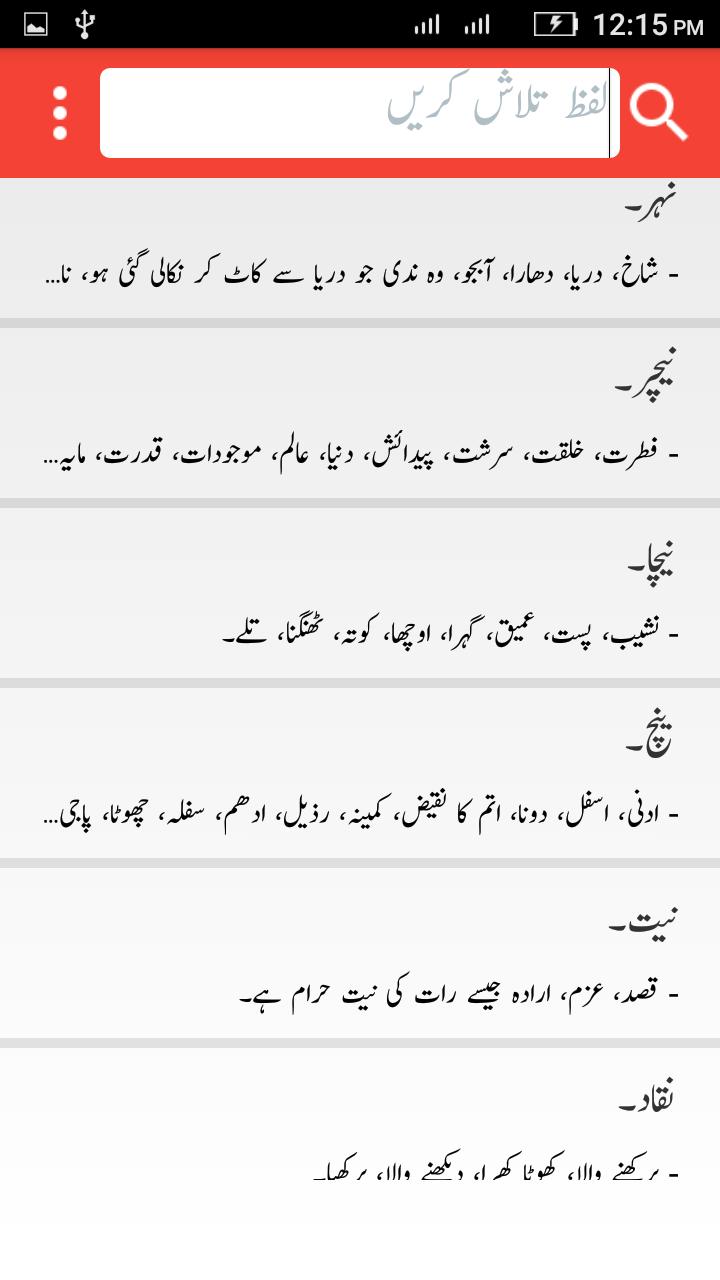 12:15 PM
لفظ تلاش کریں
نہر۔
- شاخ، دریا، دھارا، آبجو، وہ ندی جو دریا سے کاٹ کر نکالی گئی ہو، نا...
نیچر۔
- فطرت، خلقت، سرشت، پیدائش، دنیا، عالم، موجودات، قدرت، مایہ...
نیچا۔
- نشیب، پست، عمیق، گہرا، اوچھا، کوتہ، ٹھنگنا، تلے۔
نیچ۔
- ادنی، اسفل، دونا، اتم کا نقیض، کمینہ، رذیل، ادھم، سفلہ، چھوٹا، پاجی...
نیت۔
- قصد، عزم، ارادہ جیسے رات کی نیت حرام ہے۔
نقاد۔
- پرکھنے والا، کھوٹا کھرا، دیکھنے والا، پرکھیا۔